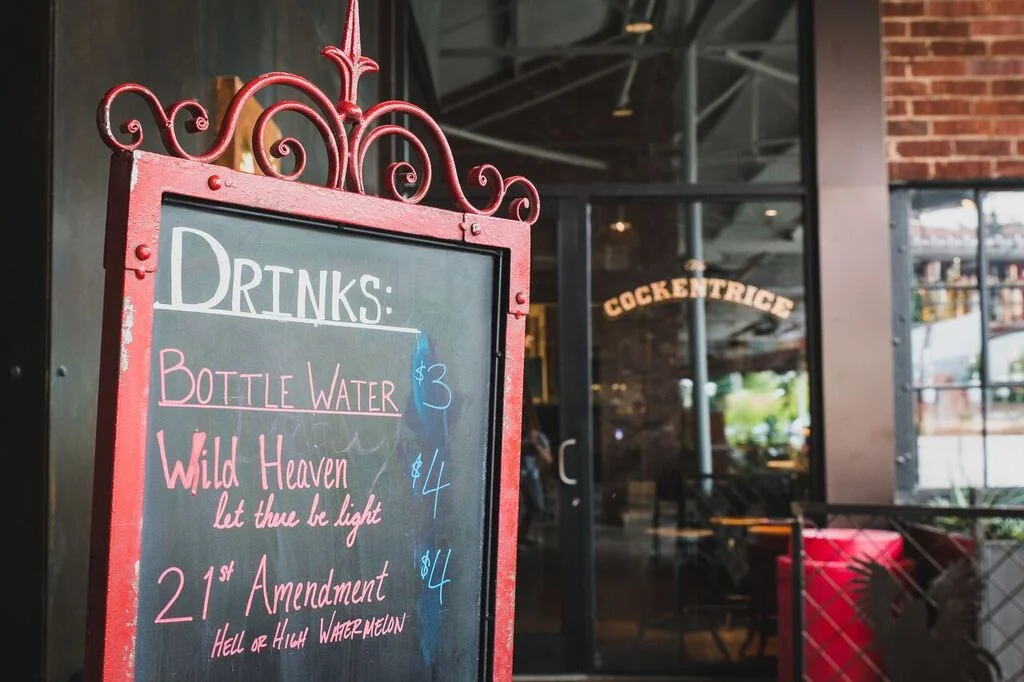 DRINKS:
BOTTLE WATER $3
Wild Heaven $4
let there be light
21st Amendment $4
HELL OR HIGH WATERMELON
COCKENTRICE